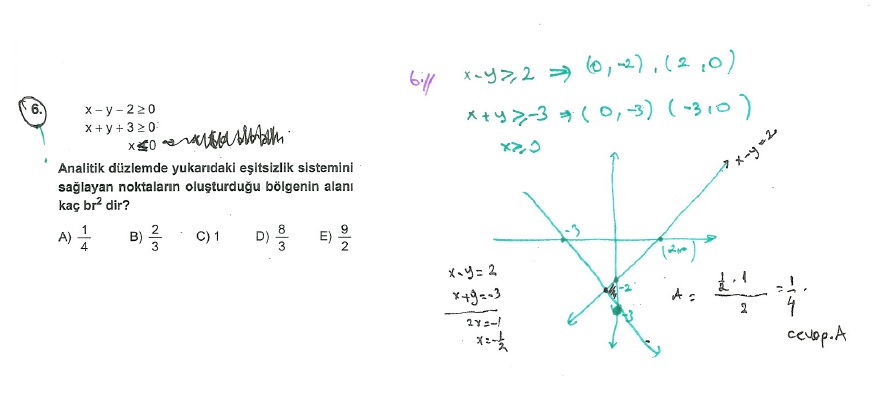 6.
x – y – 2 ≥ 0
x + y + 3 ≥ 0
x ≤ 0
Analitik düzlemde yukarıdaki eşitsizlik sistemini
sağlayan noktaların oluşturduğu bölgenin alanı
kaç br² dir?
A) 1/4 B) 2/3 C) 1 D) 8/3 E) 9/2
6.//
x-y≥2 ⇒ (0,-2), (2,0)
x+y≥-3 ⇒ (0,-3) (-3,0)
x≥0
x-y=2
-3
(2,0)
-2
-3
x-y=2
x+y=-3
2x=-1
x=-1/2
A = (1/2 · 1)/2 = 1/4.
cevap.A